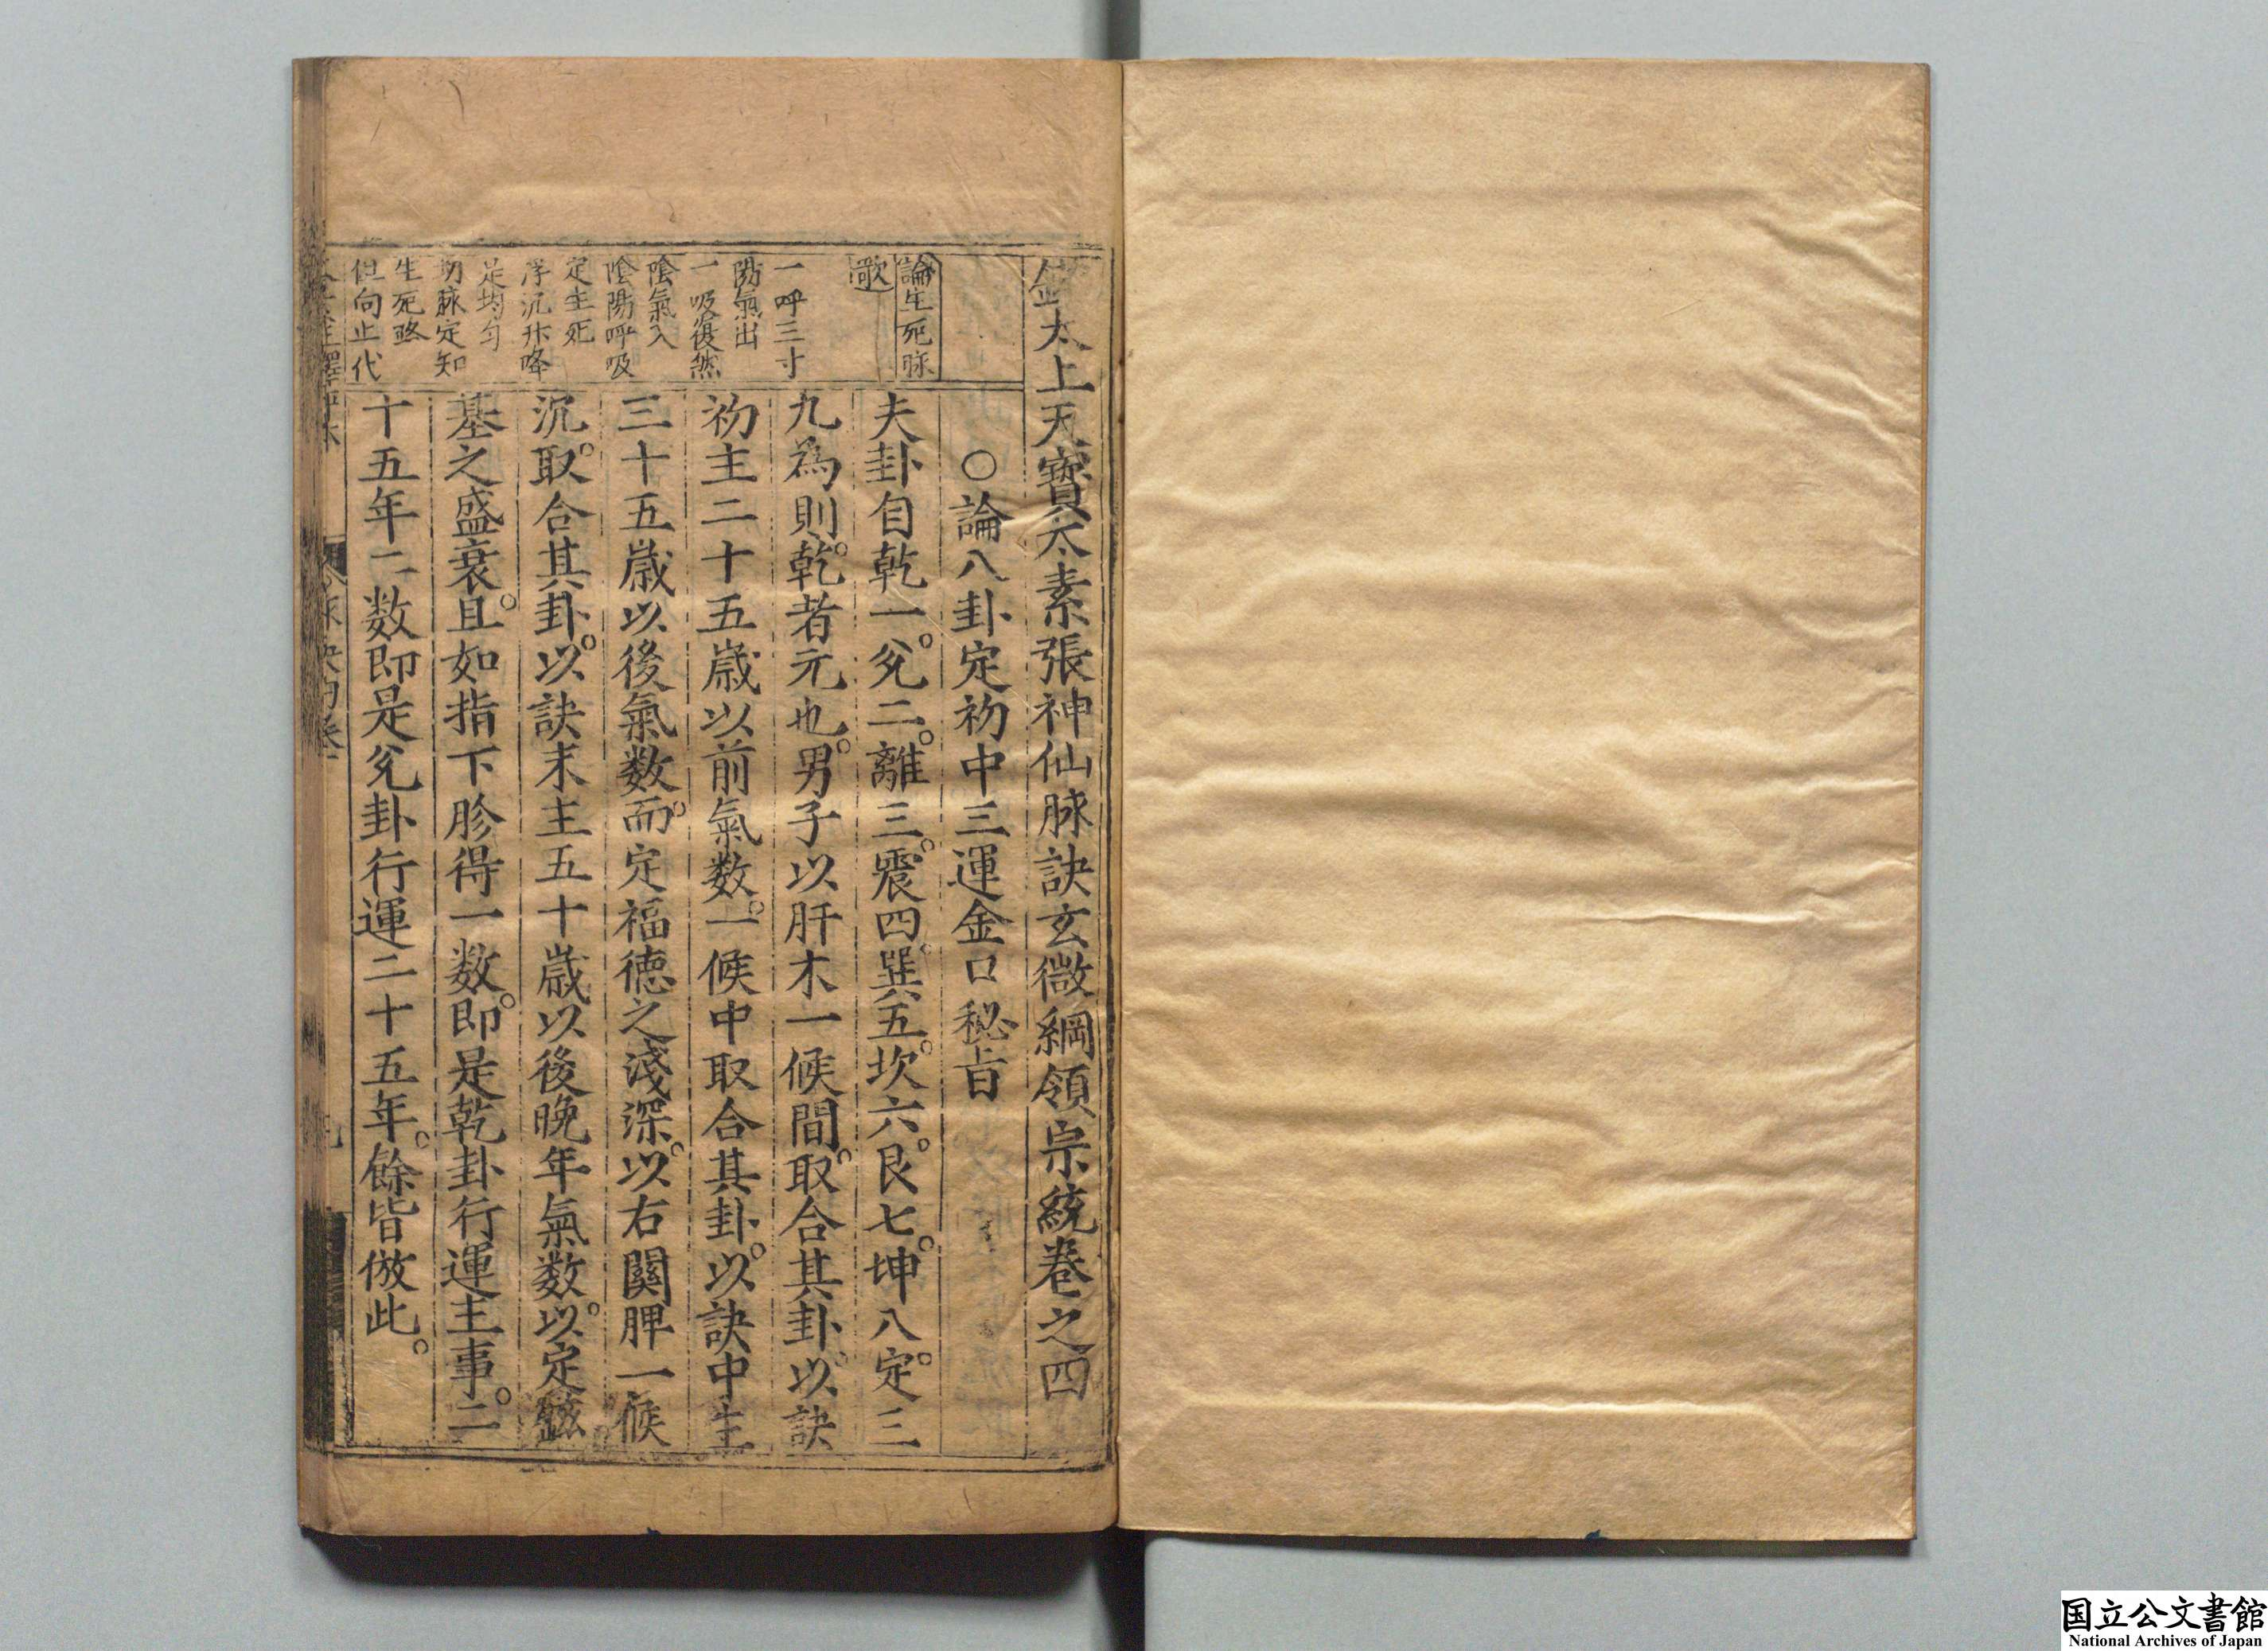 太上天寶太素張神仙脉訣玄微綱領宗統卷之四
○論八卦定初中三運金口秘旨
夫卦自乾一兊二離三震四巽五坎六艮七坤八定三
九為則乾者元也男子以肝木一候間取合其卦以訣
初主二十五歲以前氣数一候中取合其卦以訣中主
三十五歲以後氣数而定福德之淺深以右關脾一候
沉取合其卦以訣末主五十歲以後晚年氣数以定
基之盛衰且如指下胗得一数即是乾卦行運主事二
十五年二数即是兊卦行運二十五年餘皆倣此
論生死脉
歌
一呼三寸
陽氣出
一吸復然
陰氣入
陰陽呼吸
定生死
浮沉升降
足均匀
切脉定知
生死路
但向止代
国立公文書館
National Archives of Japan